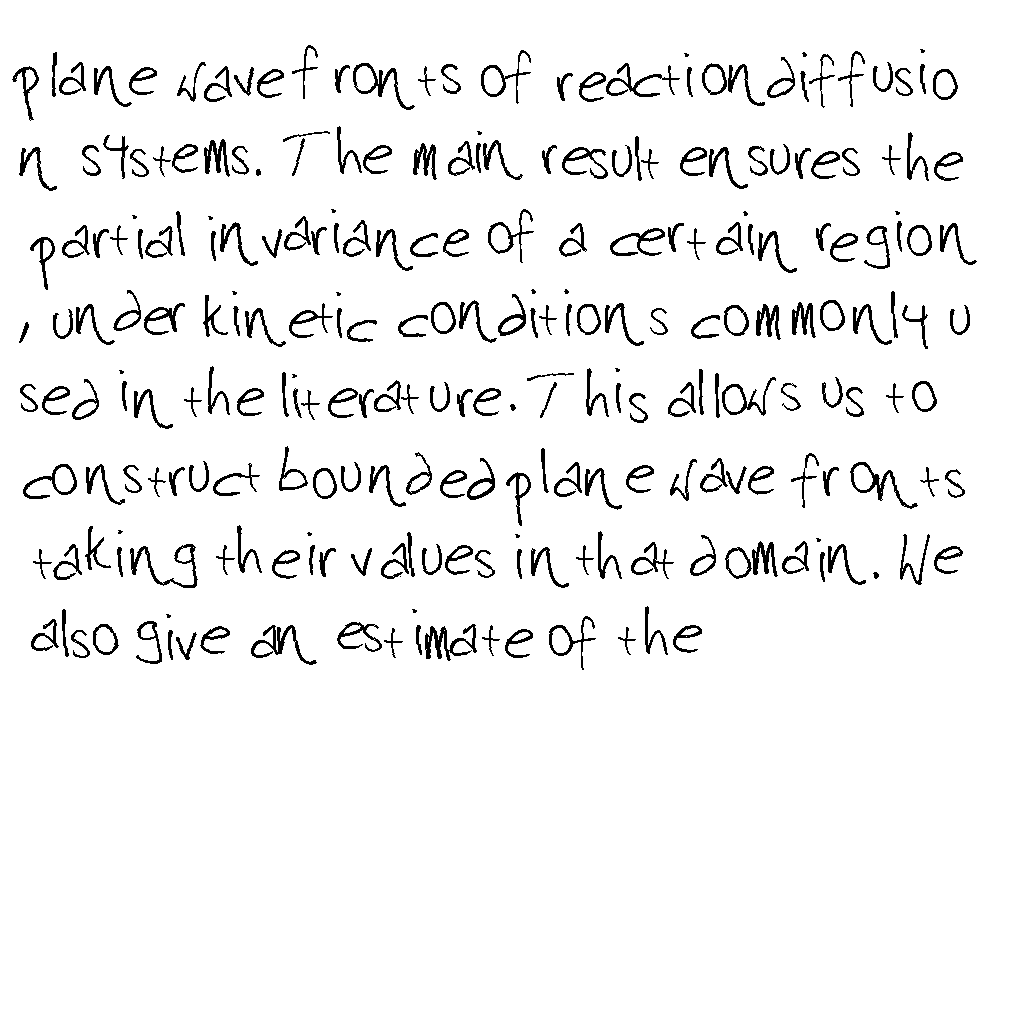 plane wavefronts of reactiondiffusio
n systems. The main result ensures the
partial invariance of a certain region
, under kinetic conditions commonly u
sed in the literature. This allows us to
construct bounded plane wave fronts
taking their values in that domain. We
also give an estimate of the